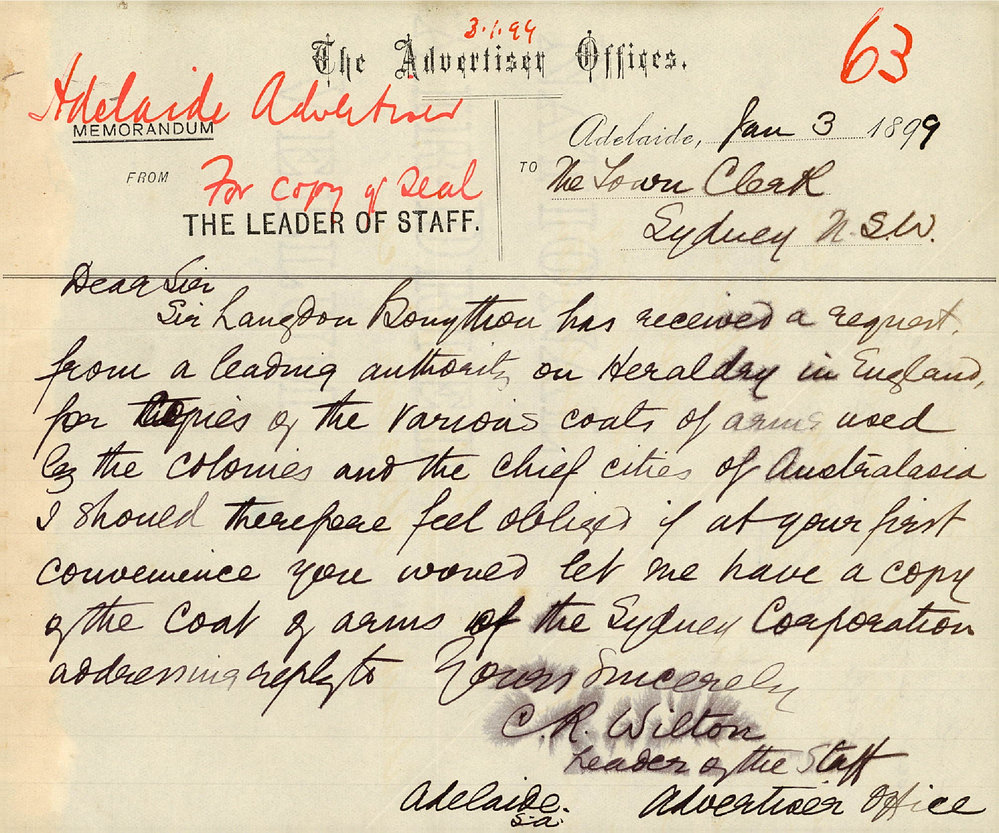 3.1.99
63
The Advertiser Offices.
Adelaide Advertiser
MEMORANDUM
Adelaide, Jan 3 1899
FROM
For copy of Seal
THE LEADER OF STAFF.
TO The Town Clerk
Sydney N.S.W.
Dear Sir
Sir Langdon Bonython has received a request,
from a leading authority on Heraldry in England,
for copies of the various coats of arms used
by the colonies and the chief cities of Australasia
I should therefore feel obliged if at your first
convenience you would let me have a copy
of the coat of arms of the Sydney Corporation
addressing reply to Yours Sincerely
C. R. Wilton
Leader of the Staff
Adelaide. Advertiser Office
S.A.